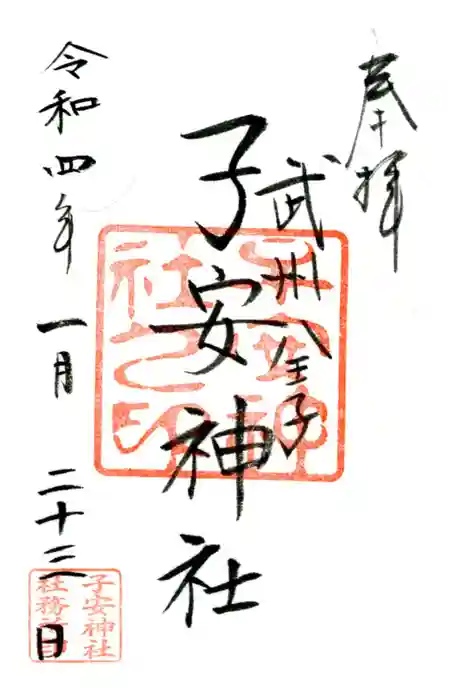 奉拝
武州八王子
子安神社
令和四年 一月 二十三日
子安神社之印
子安神社
社務所印